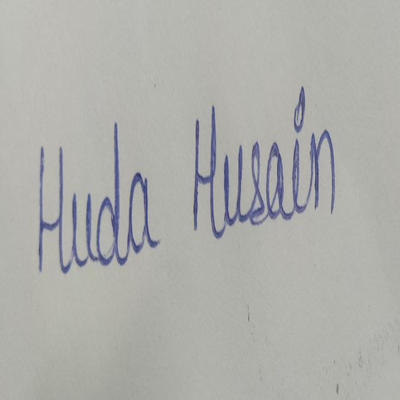 Huda Husain